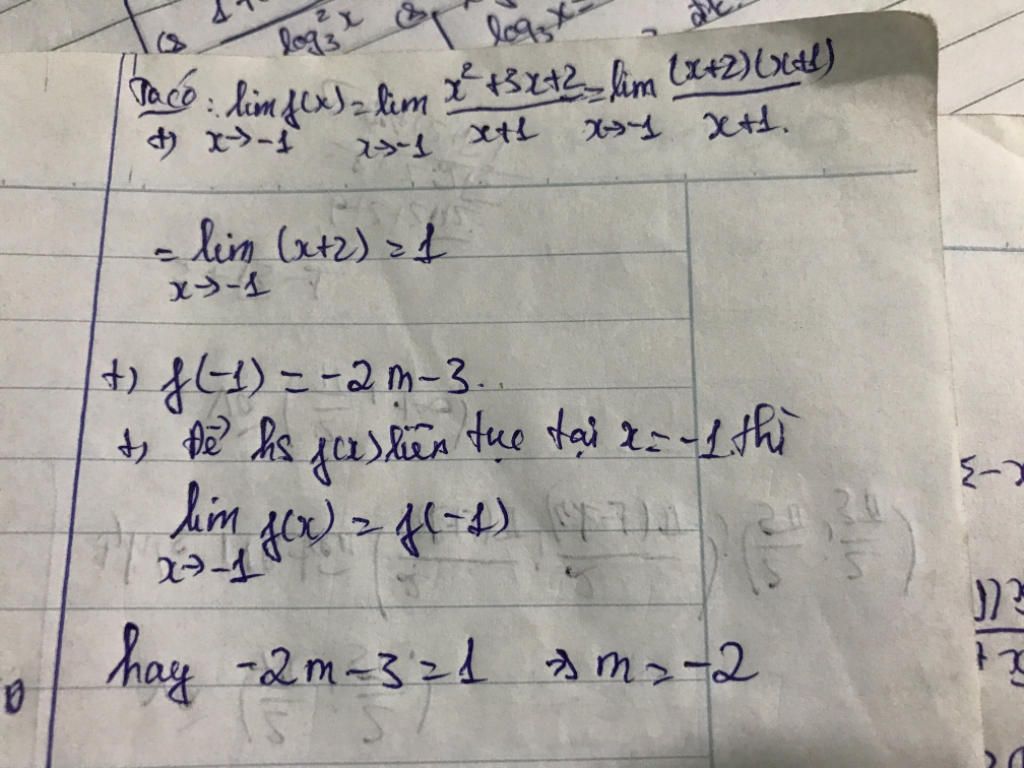 log₃²x log₃x
Ta có: lim f(x) = lim x²+3x+2 = lim (x+2)(x+1)
+) x→-1 x→-1 x+1 x→-1 x+1.
= lim (x+2) = 1
x→-1
+) f(-1) = -2m-3.
+) Để hs f(x) liên tục tại x = -1 thì
lim f(x) = f(-1)
x→-1
hay -2m-3=1 → m = -2